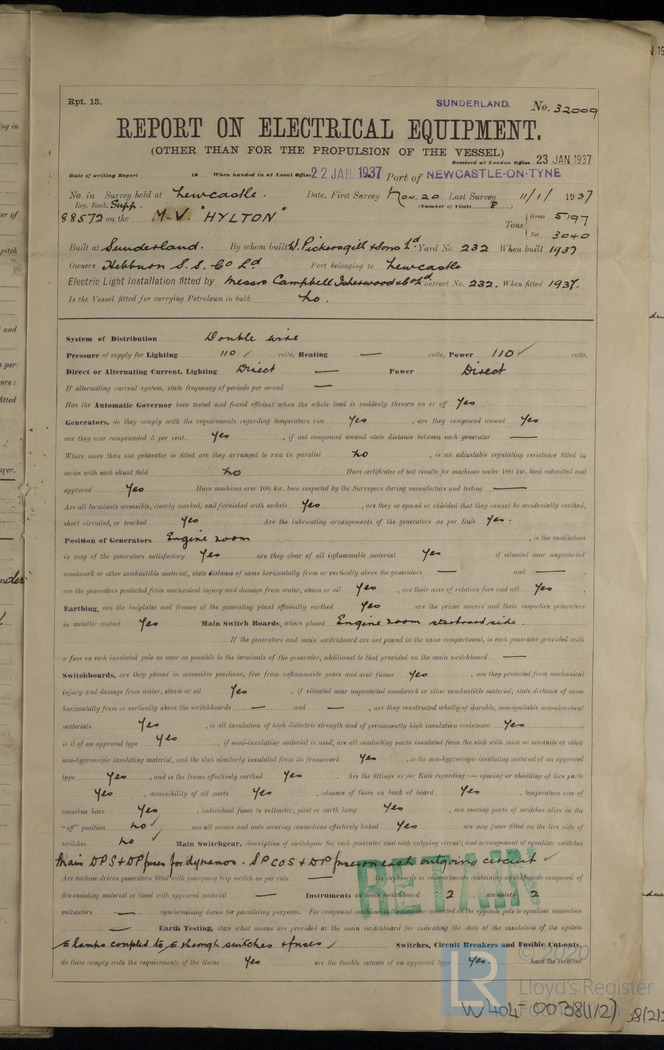 Rpt. 13.
SUNDERLAND.
No. 32009
REPORT ON ELECTRICAL EQUIPMENT.
(OTHER THAN FOR THE PROPULSION OF THE VESSEL)
Received at London Office 23 JAN 1937
Date of writing Report 19 When handed in at Local Office 22 JAN. 1937 Port of NEWCASTLE-ON-TYNE
No. in Survey held at Newcastle. Date, First Survey Nov. 20 Last Survey 11/1/ 1937
Reg. Book. Supp. (Number of Visits 8)
88572 on the M.V. "HYLTON" Tons { Gross 5197
Net 3040
Built at Sunderland. By whom built W. Pickersgill & Sons Ld. Yard No. 232 When built 1937
Owners Hebburn S.S. Co Ld Port belonging to Newcastle
Electric Light Installation fitted by Messrs Campbell Isherwood & Co Ld Contract No. 232. When fitted 1937.
Is the Vessel fitted for carrying Petroleum in bulk No.
System of Distribution Double wire
Pressure of supply for Lighting 110 ✓ volts, Heating — volts, Power 110 ✓ volts.
Direct or Alternating Current, Lighting Direct — Power Direct
If alternating current system, state frequency of periods per second —
Has the Automatic Governor been tested and found efficient when the whole load is suddenly thrown on or off Yes
Generators, do they comply with the requirements regarding temperature rise Yes , are they compound wound Yes
are they over compounded 5 per cent. Yes , if not compound wound state distance between each generator —
Where more than one generator is fitted are they arranged to run in parallel No , is an adjustable regulating resistance fitted in
series with each shunt field No Have certificates of test results for machines under 100 kw. been submitted and
approved Yes Have machines over 100 kw. been inspected by the Surveyors during manufacture and testing —
Are all terminals accessible, clearly marked, and furnished with sockets Yes , are they so spaced or shielded that they cannot be accidentally earthed,
short circuited, or touched Yes Are the lubricating arrangements of the generators as per Rule Yes.
Position of Generators Engine room , is the ventilation
in way of the generators satisfactory Yes are they clear of all inflammable material Yes if situated near unprotected
woodwork or other combustible material, state distance of same horizontally from or vertically above the generators — and —
are the generators protected from mechanical injury and damage from water, steam or oil Yes , are their axes of rotation fore and aft Yes
Earthing, are the bedplates and frames of the generating plant efficiently earthed Yes are the prime movers and their respective generators
in metallic contact Yes Main Switch Boards, where placed Engine room starboard side.
If the generators and main switchboard are not placed in the same compartment, is each generator provided with
a fuse on each insulated pole as near as possible to the terminals of the generator, additional to that provided on the main switchboard —
Switchboards, are they placed in accessible positions, free from inflammable gases and acid fumes Yes , are they protected from mechanical
injury and damage from water, steam or oil Yes , if situated near unprotected woodwork or other combustible material, state distance of same
horizontally from or vertically above the switchboards — and — , are they constructed wholly of durable, non-ignitable non-absorbent
materials Yes , is all insulation of high dielectric strength and of permanently high insulation resistance Yes
is it of an approved type Yes , if semi-insulating material is used, are all conducting parts insulated from the slab with mica or micanite or other
non-hygroscopic insulating material, and the slab similarly insulated from its framework Yes , is the non-hygroscopic insulating material of an approved
type Yes , and is the frame effectively earthed Yes . Are the fittings as per Rule regarding:— spacing or shielding of live parts
Yes , accessibility of all parts Yes , absence of fuses on back of board Yes , temperature rise of
omnibus bars Yes , individual fuses to voltmeter, pilot or earth lamp Yes , are moving parts of switches alive in the
"off" position No ✓ are all screws and nuts securing connections effectively locked Yes are any fuses fitted on the live side of
switches No ✓ Main Switchgear, description of switchgear for each generator and each outgoing circuit, and arrangement of equalizer switches
Main D P S + D P fuses for dynamos. S P C O S + D P fuses on each outgoing circuit ✓
Are turbine driven generators fitted with emergency trip switch as per rule —
fire-resisting material or lined with approved material — Instruments on main switchboard 2 2
voltmeters — synchronising device for paralleling purposes. For compound
— Earth Testing, state what means are provided at the main switchboard for indicating the state of the insulation of the system
E lamps coupled to E through switches & fuses ✓ Switches, Circuit Breakers and Fusible Cut-outs,
do these comply with the requirements of the Rules Yes are the fusible cutouts of an approved type Yes. have the reversed
RETAIN
© 2020
LR
Lloyd's Register
W404-0038(1/2)